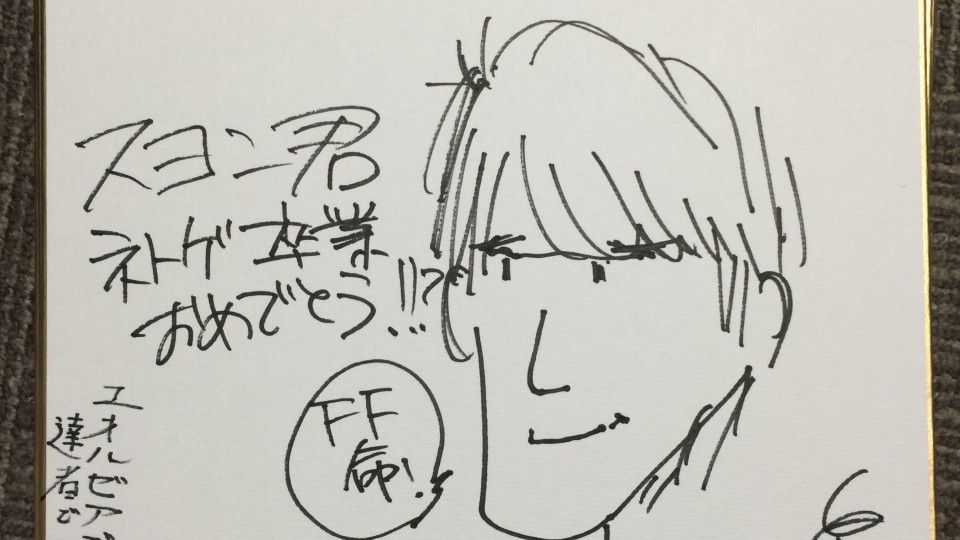 スヨン君
ネトゲ卒業
おめでとう!!?
FF
命!
エオルゼアで
達者で